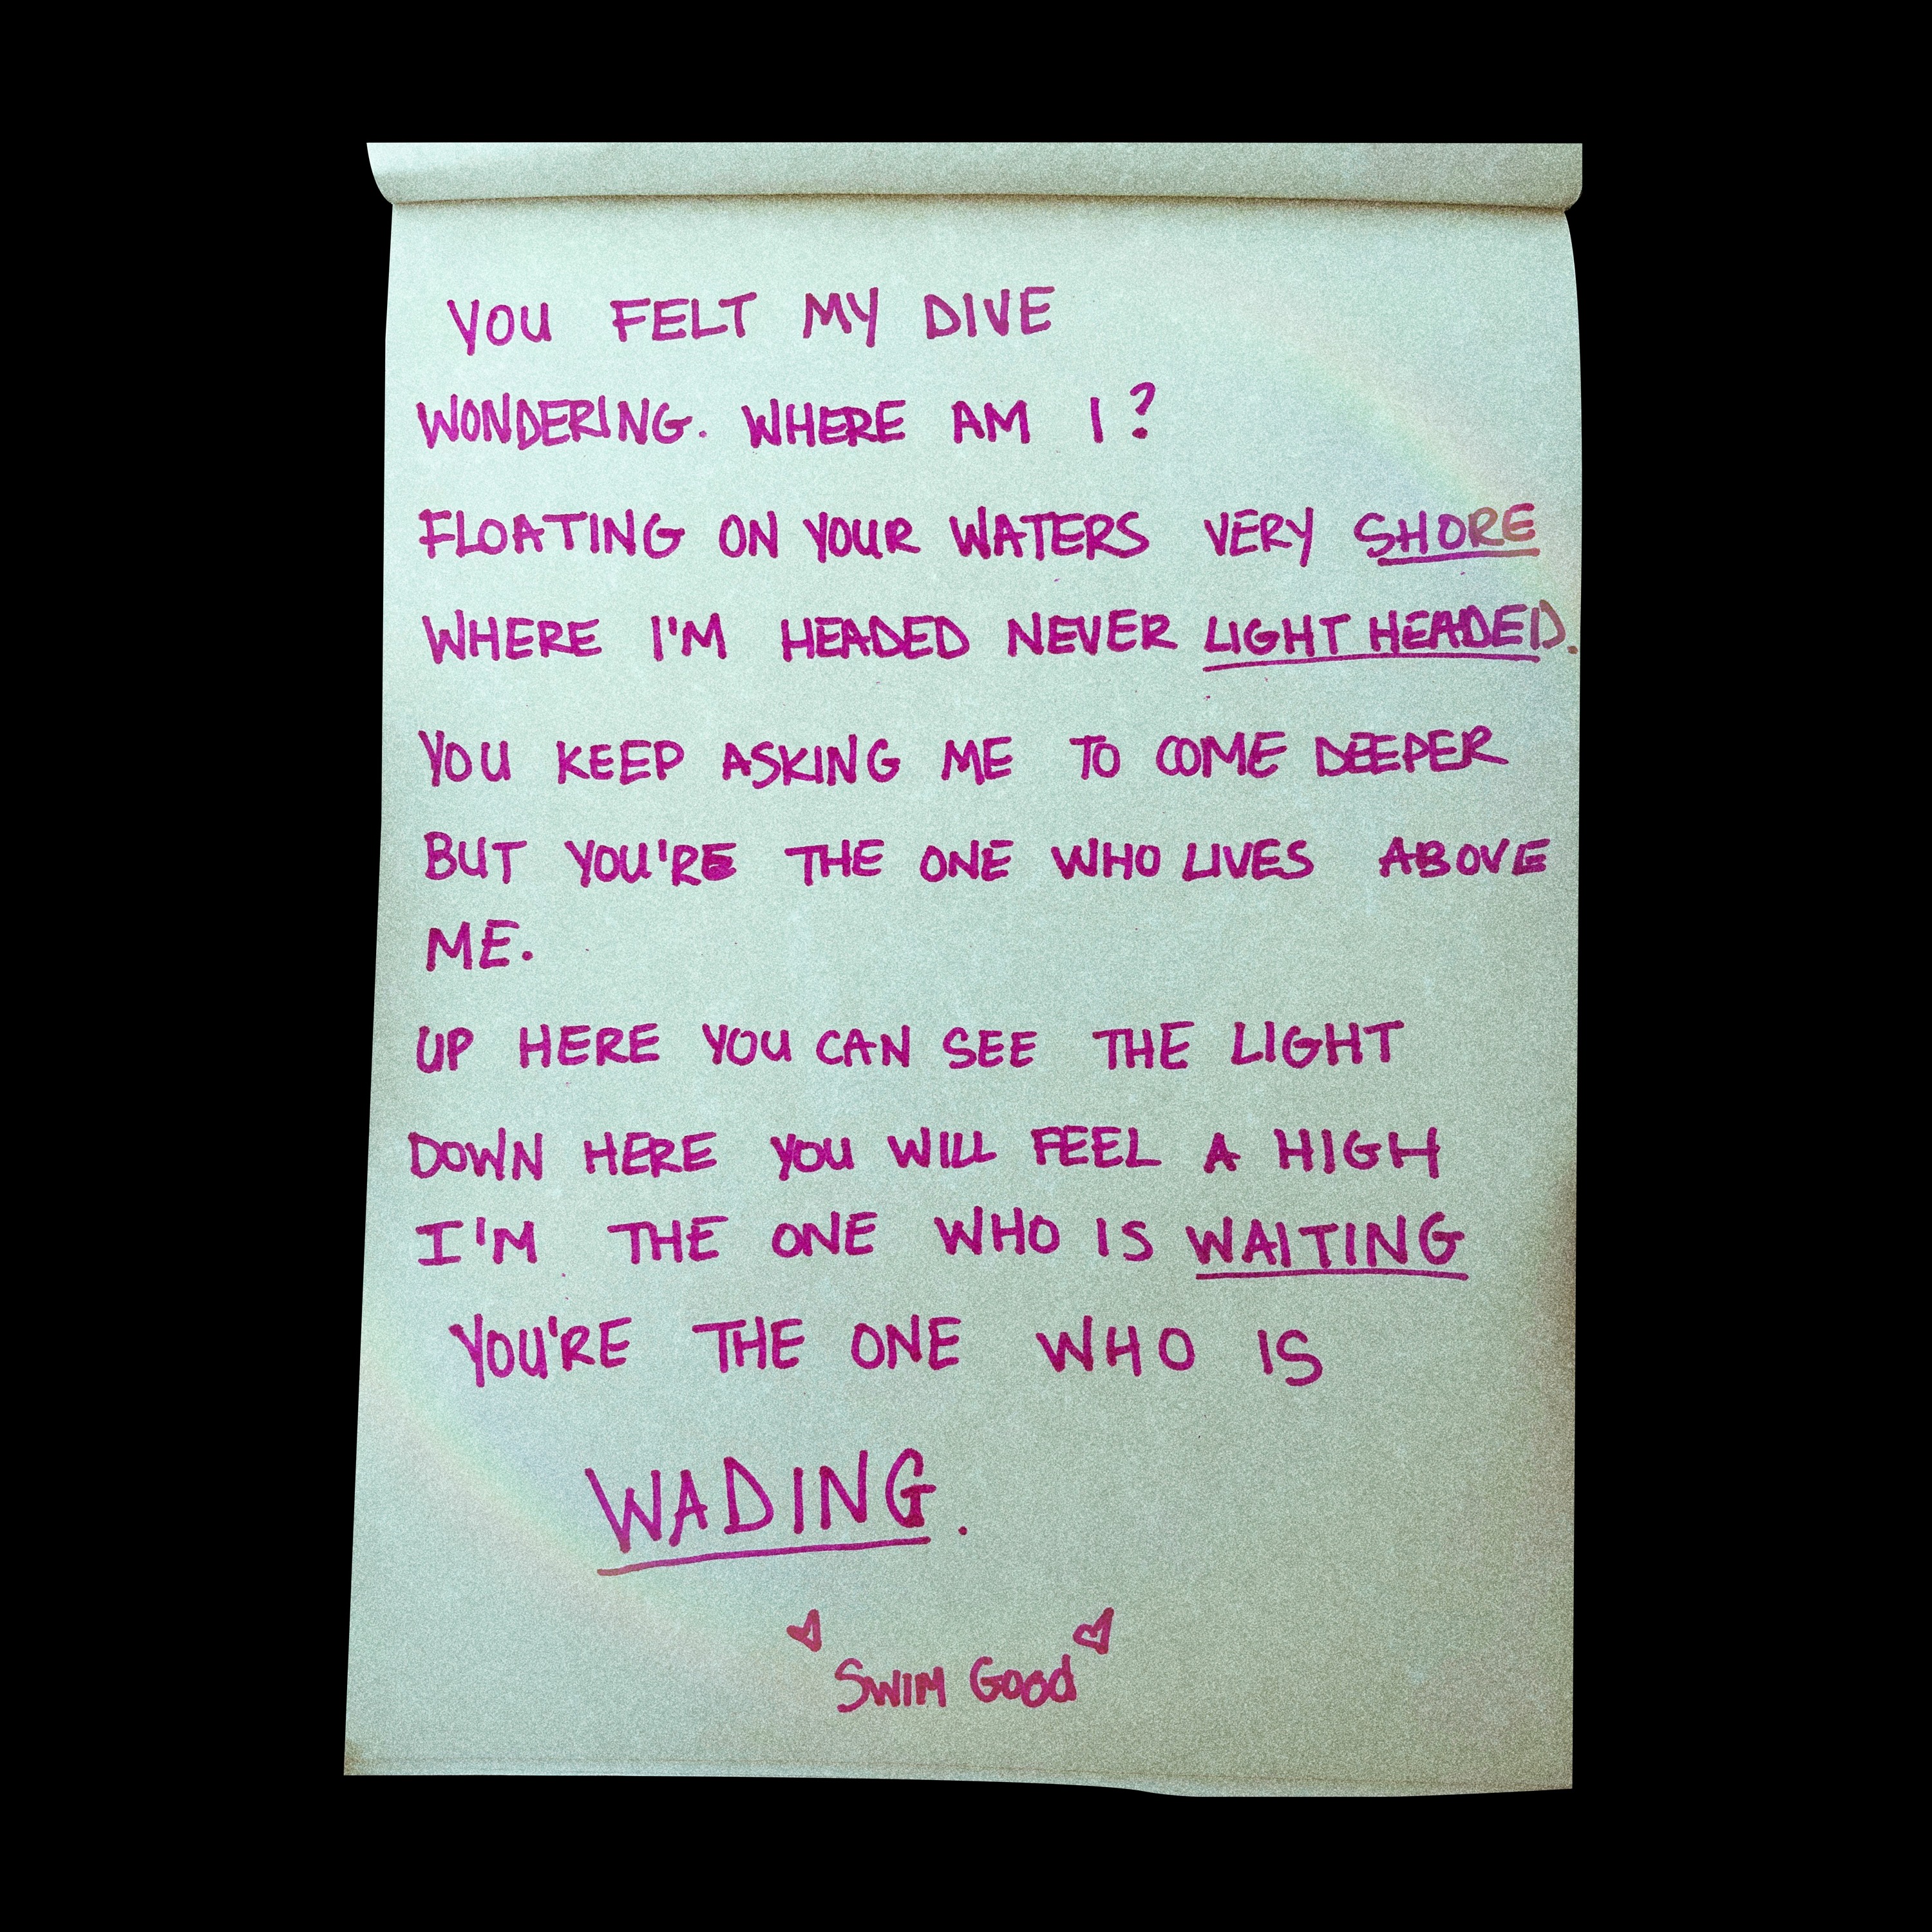 YOU FELT MY DIVE
WONDERING. WHERE AM I?
FLOATING ON YOUR WATERS VERY SHORE
WHERE I'M HEADED NEVER LIGHT HEADED.
YOU KEEP ASKING ME TO COME DEEPER
BUT YOU'RE THE ONE WHO LIVES ABOVE
ME.
UP HERE YOU CAN SEE THE LIGHT
DOWN HERE YOU WILL FEEL A HIGH
I'M THE ONE WHO IS WAITING
YOU'RE THE ONE WHO IS
WADING.
SWIM GOOD